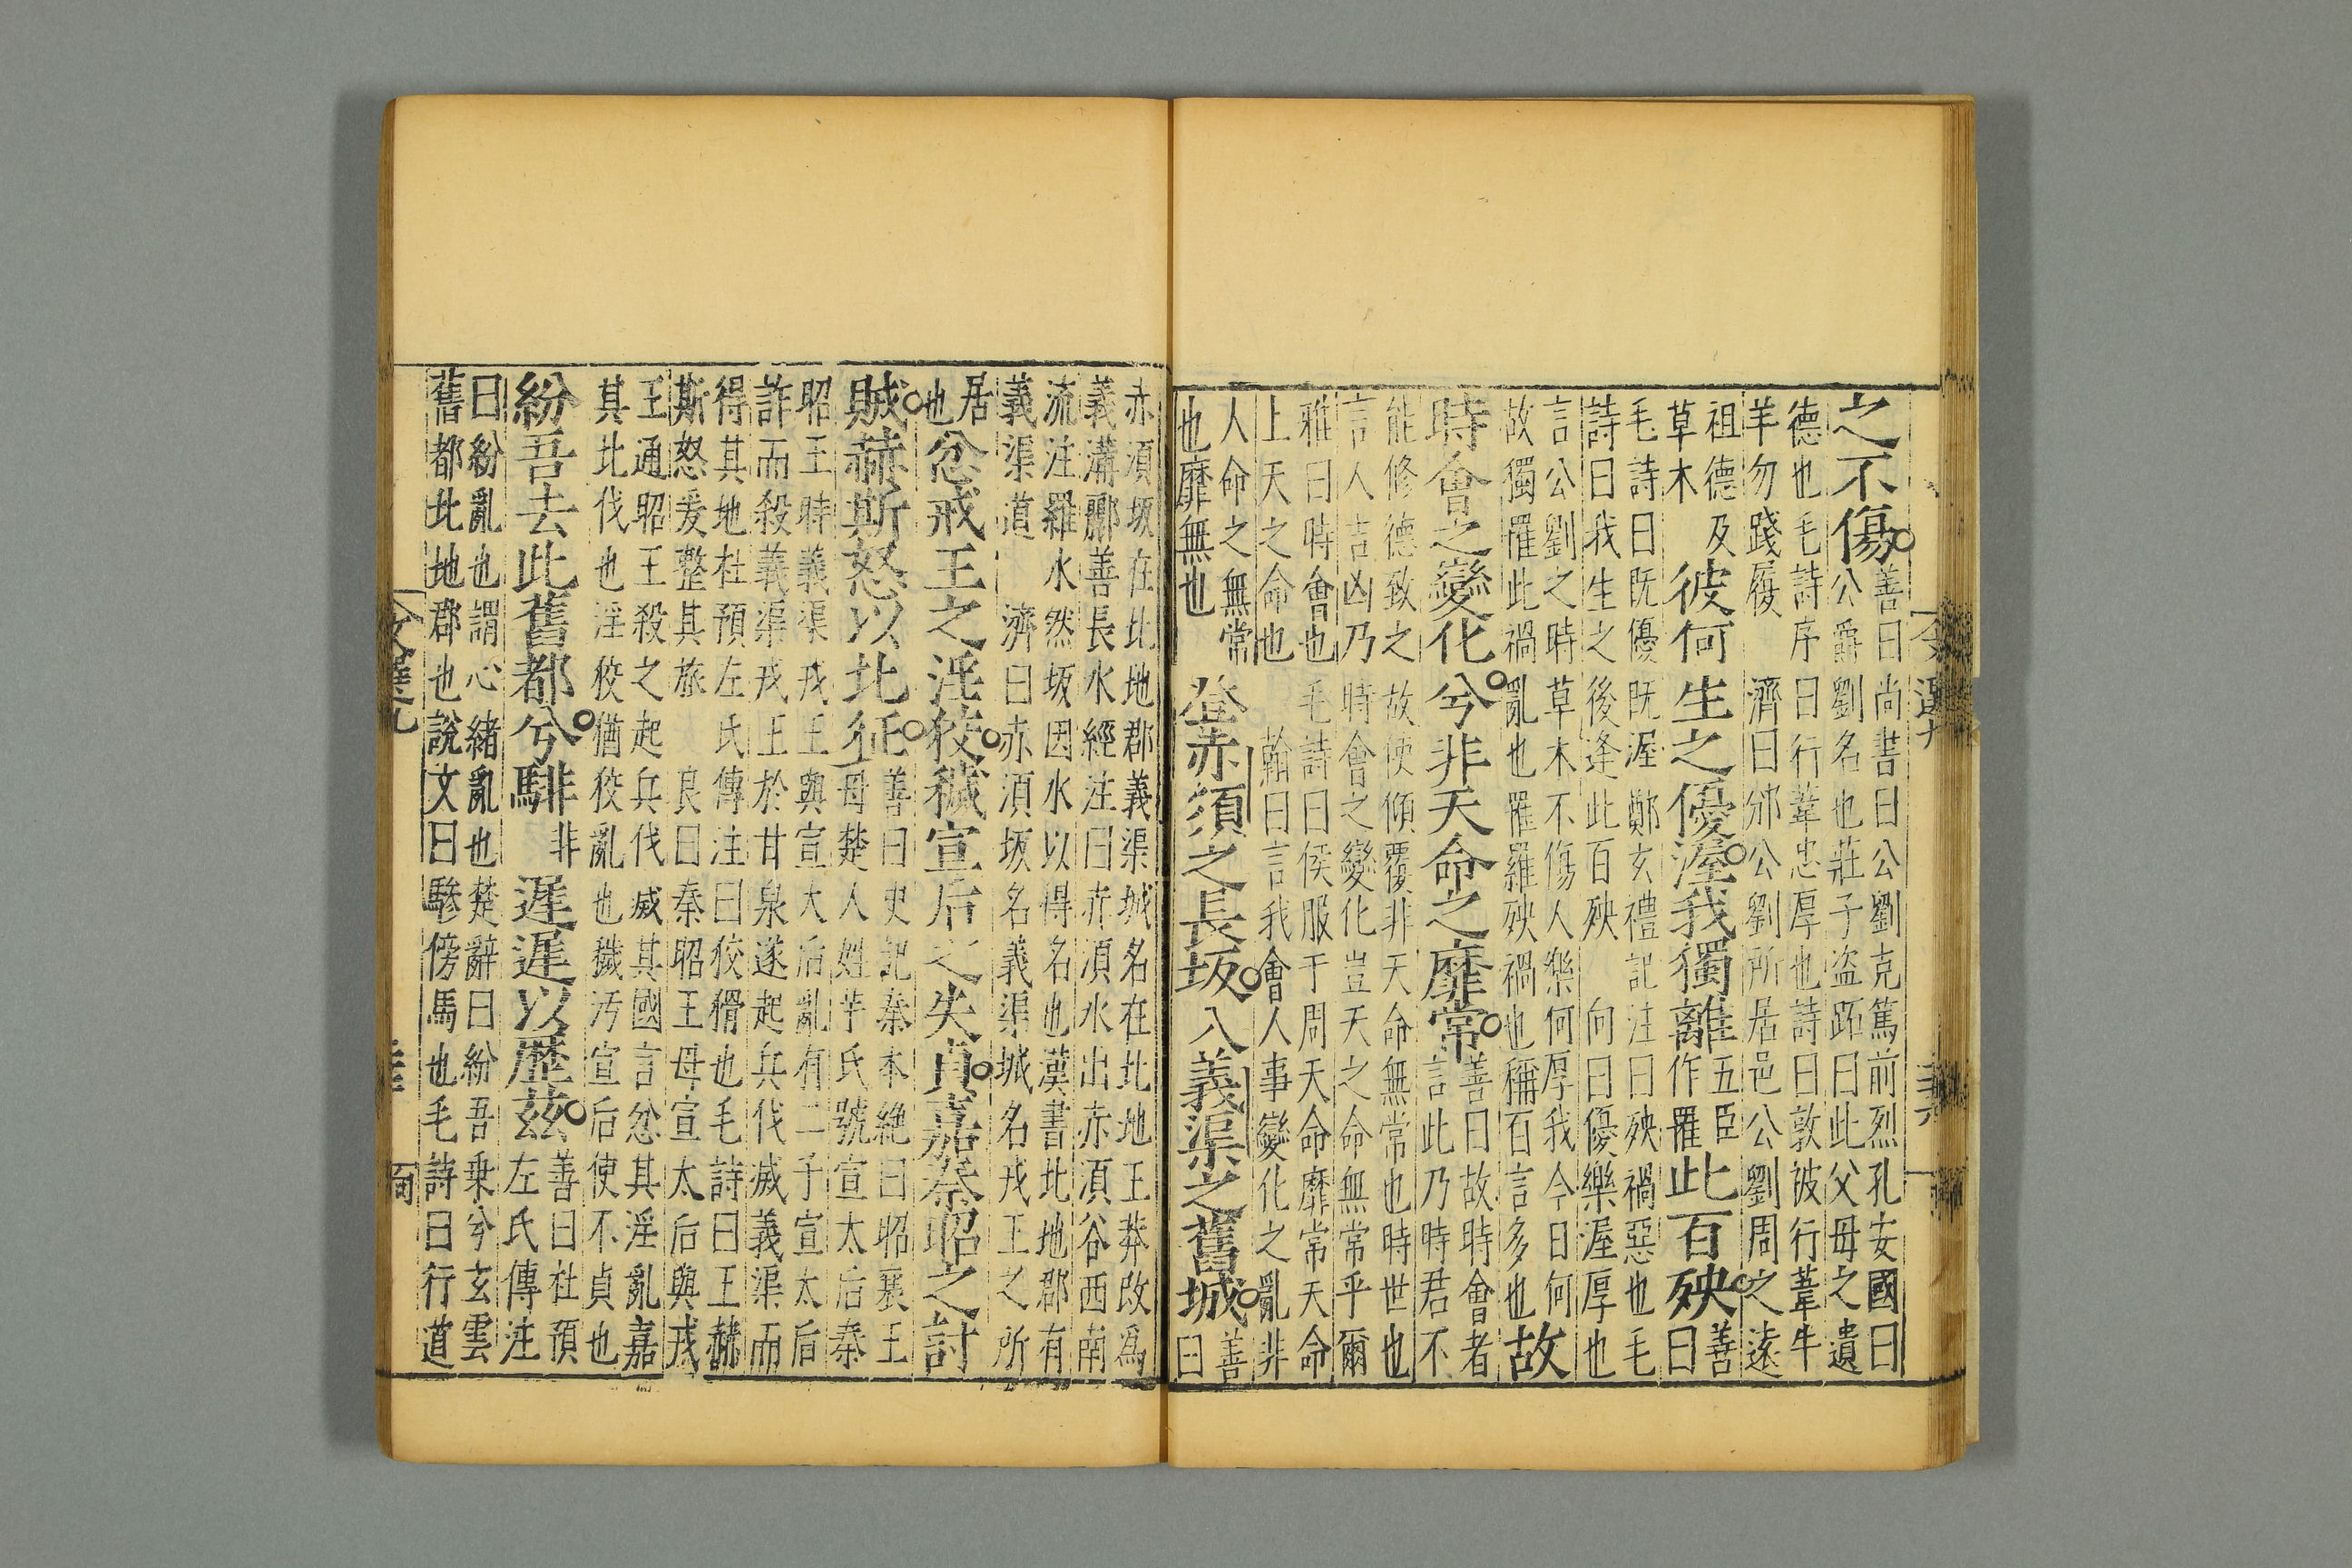 之不傷善曰尚書曰公劉克篤前烈孔安國曰
公爵劉名也莊子盜跖曰此父母之遺
德也毛詩序曰行葦忠厚也詩曰敦彼行葦牛
羊勿踐履 濟曰邠公劉所居邑公劉周之遠
祖德及
草木彼何生之優渥我獨離五臣
作罹此百殃善
曰
毛詩曰既優既渥鄭玄禮記注曰殃禍惡也毛
詩曰我生之後逢此百殃 向曰優樂渥厚也
言公劉之時草木不傷人樂何厚我今日何
故獨罹此禍亂也罹羅殃禍也稱百言多也故
時會之變化兮非天命之靡常善曰故時會者
言此乃時君不
能修德致之故使傾覆非天命無常也時世也
言人吉凶乃時會之變化豈天之命無常乎爾
雅曰時會也毛詩曰侯服于周天命靡常天命
上天之命也 翰曰言我會人事變化之亂非
人命之無常
也靡無也登赤須之長坂入義渠之舊城善
曰
赤須坂在北地郡義渠城名在北地王莽改為
義溝酈善長水經注曰赤須水出赤須谷西南
流注羅水然坂因水以得名也漢書北地郡有
義渠道 濟曰赤須坂名義渠城名戎王之所
居
也忿戎王之淫狡穢宣后之失貞嘉秦昭之討
賊赫斯怒以北征善曰史記秦本紀曰昭襄王
母楚人姓芈氏號宣太后秦
昭王時義渠戎王與宣太后亂有二子宣太后
詐而殺義渠戎王於甘泉遂起兵伐滅義渠而
得其地杜預左氏傳注曰狡猾也毛詩曰王赫
斯怒爰整其旅 良曰秦昭王母宣太后與戎
王通昭王殺之起兵伐威其國言忿其淫亂嘉
其北伐也淫狡猶狡亂也穢汚宣后使不貞也
紛吾去此舊都兮騑非遲遲以歷茲善曰杜預
左氏傳注
曰紛亂也謂心緒亂也楚辭曰紛吾乗兮玄雲
舊都北地郡也說文曰驂傍馬也毛詩曰行道